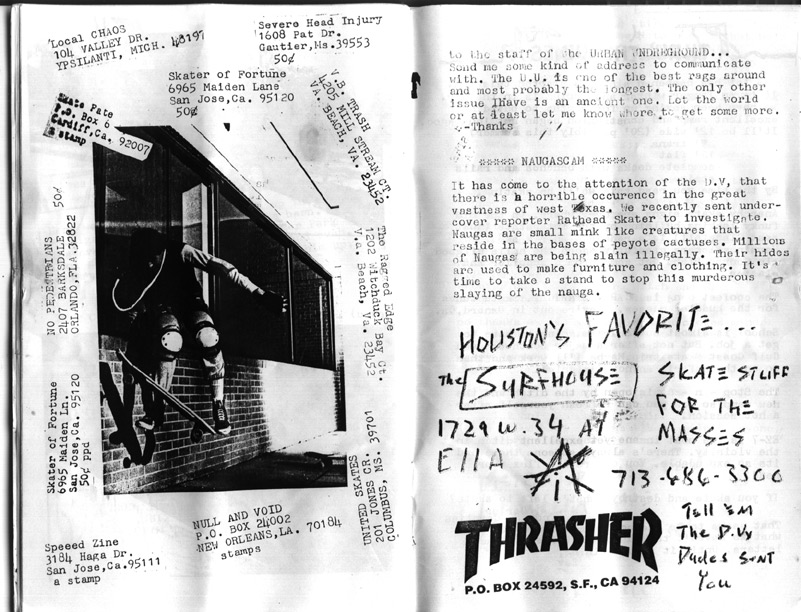 Local CHAOS
104 VALLEY DR.
YPSILANTI, MICH. 48197
Severe Head Injury
1608 Pat Dr.
Gautier,Ms.39553
50¢
Skater of Fortune
6965 Maiden Lane
San Jose,Ca. 95120
50¢
V.B. TRASH
4205 MILL STREAM CT.
VA. BEACH, VA. 23452
Skate Fate
P.O. Box 6
Cardiff,Ca. 92007
a stamp
NO PEDESTRIANS 50¢
2407 BARKSDALE
ORLANDO,FLA.32822
The Ragged Edge
1202 Witchduck Bay Ct.
V.a. Beach, Va. 23452
Skater of Fortune
6965 Maiden Ln.
San Jose,Ca. 95120
50¢ ppd
UNITED SKATES
201 JONES CR.
COLUMBUS, MS. 39701
NULL AND VOID
P.O. BOX 24002
NEW ORLEANS,LA. 70184
stamps
Speeed Zine
3184 Haga Dr.
San Jose,Ca.95111
a stamp
to the staff of the URBAN UNDREGROUND...
Send me some kind of address to communicate
with. The U.U. is one of the best rags around
and most probably the longest. The only other
issue IHave is an ancient one. Let the world
or at least let me know where to get some more.
--Thanks
***** NAUGASCAM *****
It has come to the attention of the D.V, that
there is a horrible occurence in the great
vastness of west Texas. We recently sent under-
cover reporter Rathead Skater to investigate.
Naugas are small mink like creatures that
reside in the bases of peyote cactuses. Millions
of Naugas are being slain illegally. Their hides
are used to make furniture and clothing. It's
time to take a stand to stop this murderous
slaying of the nauga.
HOUSTON'S FAVORITE...
THE SURFHOUSE
1729 W. 34 AT
ELLA
SKATE STUFF
FOR THE
MASSES
713-686-3300
THRASHER
P.O. BOX 24592, S.F., CA 94124
Tell 'EM
The D.V.
Dudes SENT
You